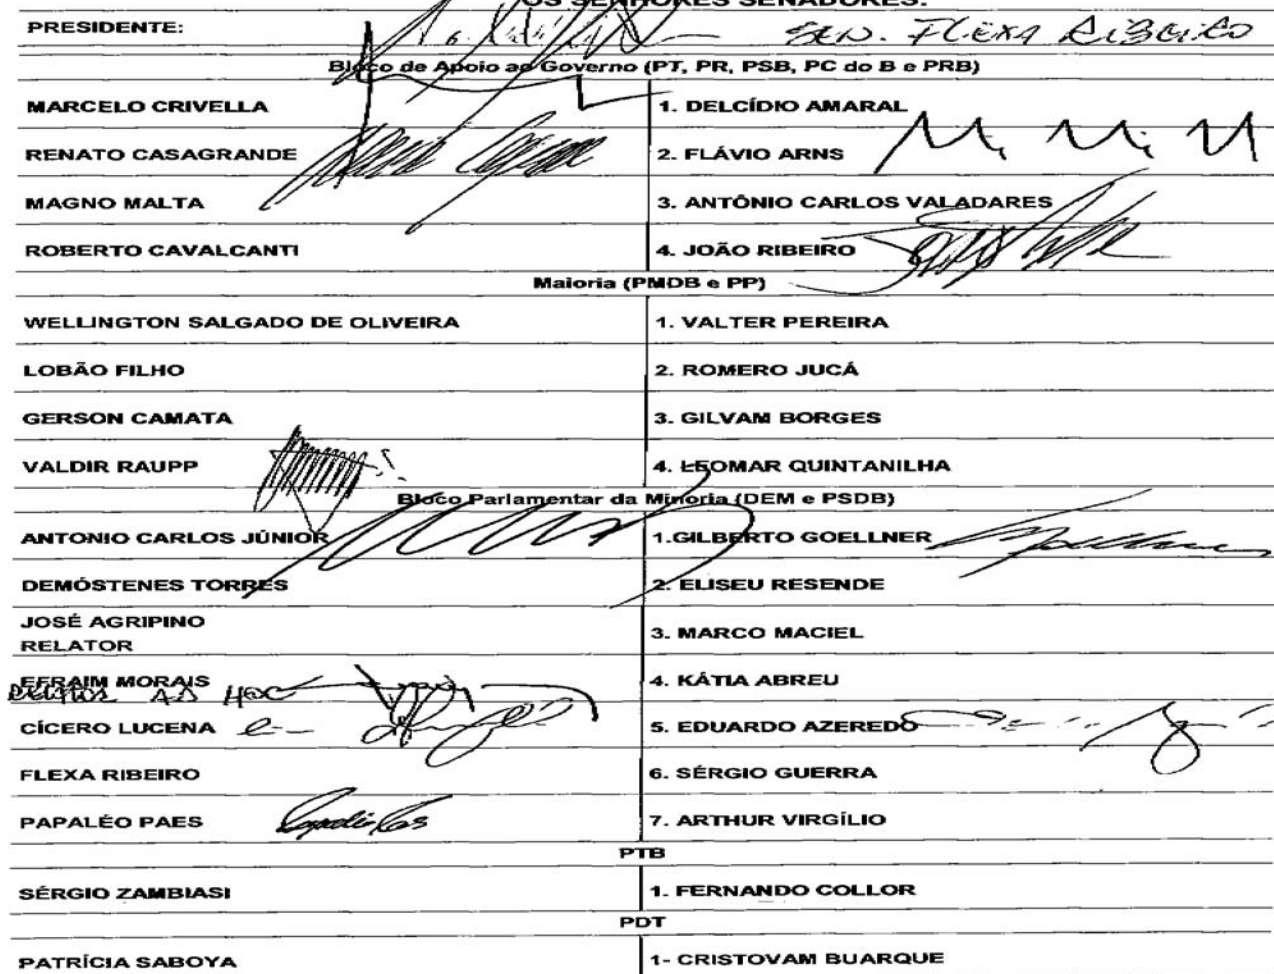 OS SENHORES SENADORES:
PRESIDENTE: SEN. FLEXA RIBEIRO
Bloco de Apoio ao Governo (PT, PR, PSB, PC do B e PRB)
MARCELO CRIVELLA 1. DELCÍDIO AMARAL
RENATO CASAGRANDE 2. FLÁVIO ARNS
MAGNO MALTA 3. ANTÔNIO CARLOS VALADARES
ROBERTO CAVALCANTI 4. JOÃO RIBEIRO
Maioria (PMDB e PP)
WELLINGTON SALGADO DE OLIVEIRA 1. VALTER PEREIRA
LOBÃO FILHO 2. ROMERO JUCÁ
GERSON CAMATA 3. GILVAM BORGES
VALDIR RAUPP 4. LEOMAR QUINTANILHA
Bloco Parlamentar da Minoria (DEM e PSDB)
ANTONIO CARLOS JÚNIOR 1.GILBERTO GOELLNER
DEMÓSTENES TORRES 2. ELISEU RESENDE
JOSÉ AGRIPINO
RELATOR 3. MARCO MACIEL
EFRAIM MORAIS 4. KÁTIA ABREU
RELATOR AD HOC
CÍCERO LUCENA 5. EDUARDO AZEREDO
FLEXA RIBEIRO 6. SÉRGIO GUERRA
PAPALÉO PAES 7. ARTHUR VIRGÍLIO
PTB
SÉRGIO ZAMBIASI 1. FERNANDO COLLOR
PDT
PATRÍCIA SABOYA 1- CRISTOVAM BUARQUE